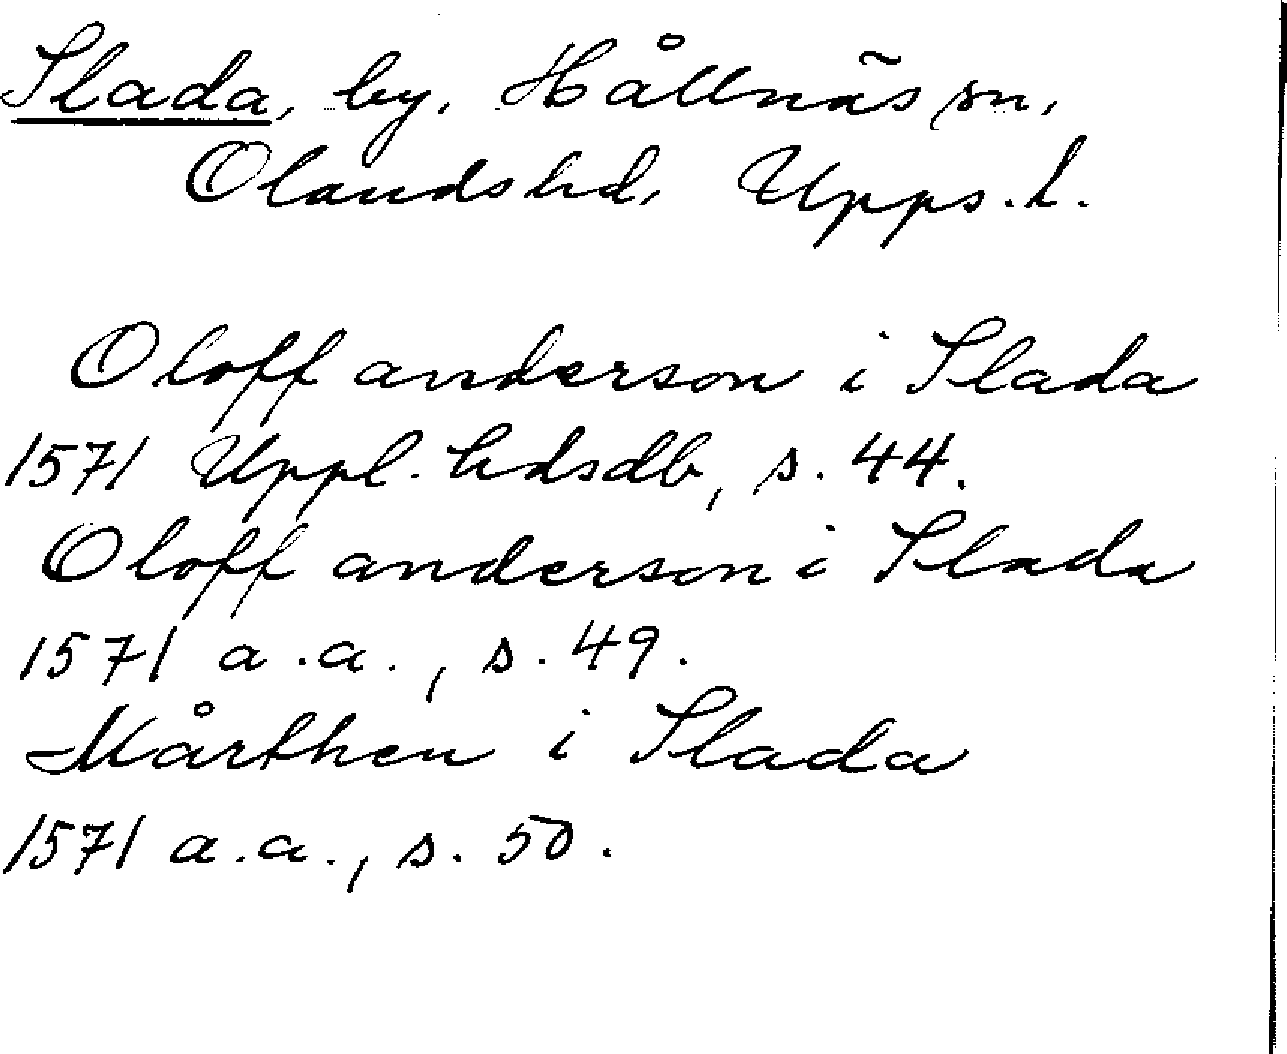 Slada, by, Hållnäs sn,
Olands hd, Upps. l.
Oloff anderson i Slada
1571 Uppl. hdsdb, s. 44.
Oloff anderson i Slada
1571 a.a., s. 49.
Mårthen i Slada
1571 a.a., s. 50.